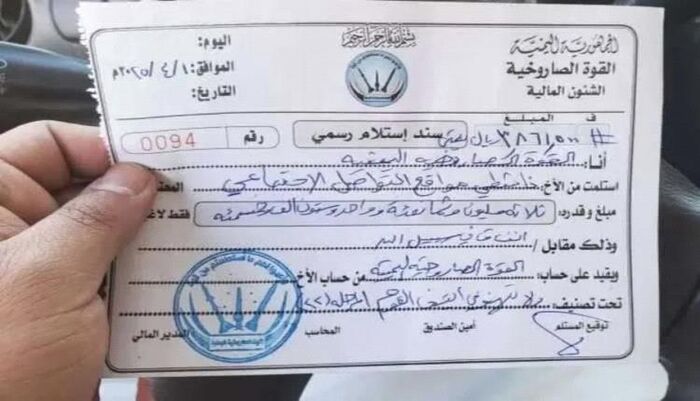 بسم الله الرحمن الرحيم
الجمهورية اليمنية
القوة الصاروخية
الشئون المالية
اليوم:
الموافق: ٢٠٢٥/٤/١م
التاريخ:
ف المبلغ
# ٣٨٦١٥٠٠ ريال يمني #
سند إستلام رسمي
رقم 0094
أنا: القوة الصاروخية اليمنية
استلمت من الأخ: ناشطي مواقع التواصل الاجتماعي المحترم
مبلغ وقدره: ثلاثة مليون وثمانمائة وواحد وستون ألف وخمسمئة فقط لاغير
وذلك مقابل / انفاق في سبيل الله
ويقيد على حساب: القوة الصاروخية اليمنية من حساب الأخ
تحت تصنيف: (ولا تهنوا في ابتغاء القوم) المرحلة (٢٢)
توقيع المستلم
أمين الصندوق
المحاسب
المدير المالي